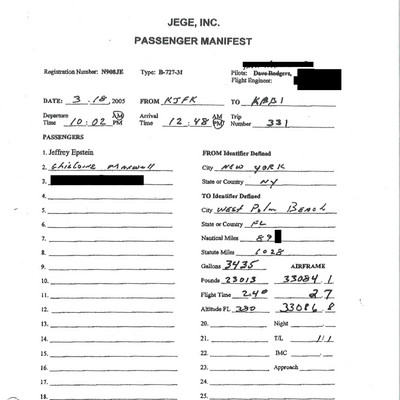 JEGE, INC.
PASSENGER MANIFEST
Registration Number: N908JE Type: B-727-31 Pilots: Dave Rodgers,
Flight Engineer:
DATE: 3.18,2005 FROM KJFK TO KPBI
Departure Time 10:02 AM PM Arrival Time 12:48 AM PM Trip Number 331
PASSENGERS
1. Jeffrey Epstein FROM Identifier Defined
2. Ghislaine Maxwell City NEW YORK
3. State or Country NY
4. TO Identifier Defined
5. City WEST Palm BEACH
6. State or Country FL
7. Nautical Miles 89
8. Statute Miles 1028
9. Gallons 3435 AIRFRAME
10. Pounds 23013 33084 1
11. Flight Time 2:40 2 7
12. Altitude FL 380 33086 8
13. 20. Night
14. 21. T/L 1/1
15. 22. IMC
16. 23. Approach
17. 24.
18. 25.